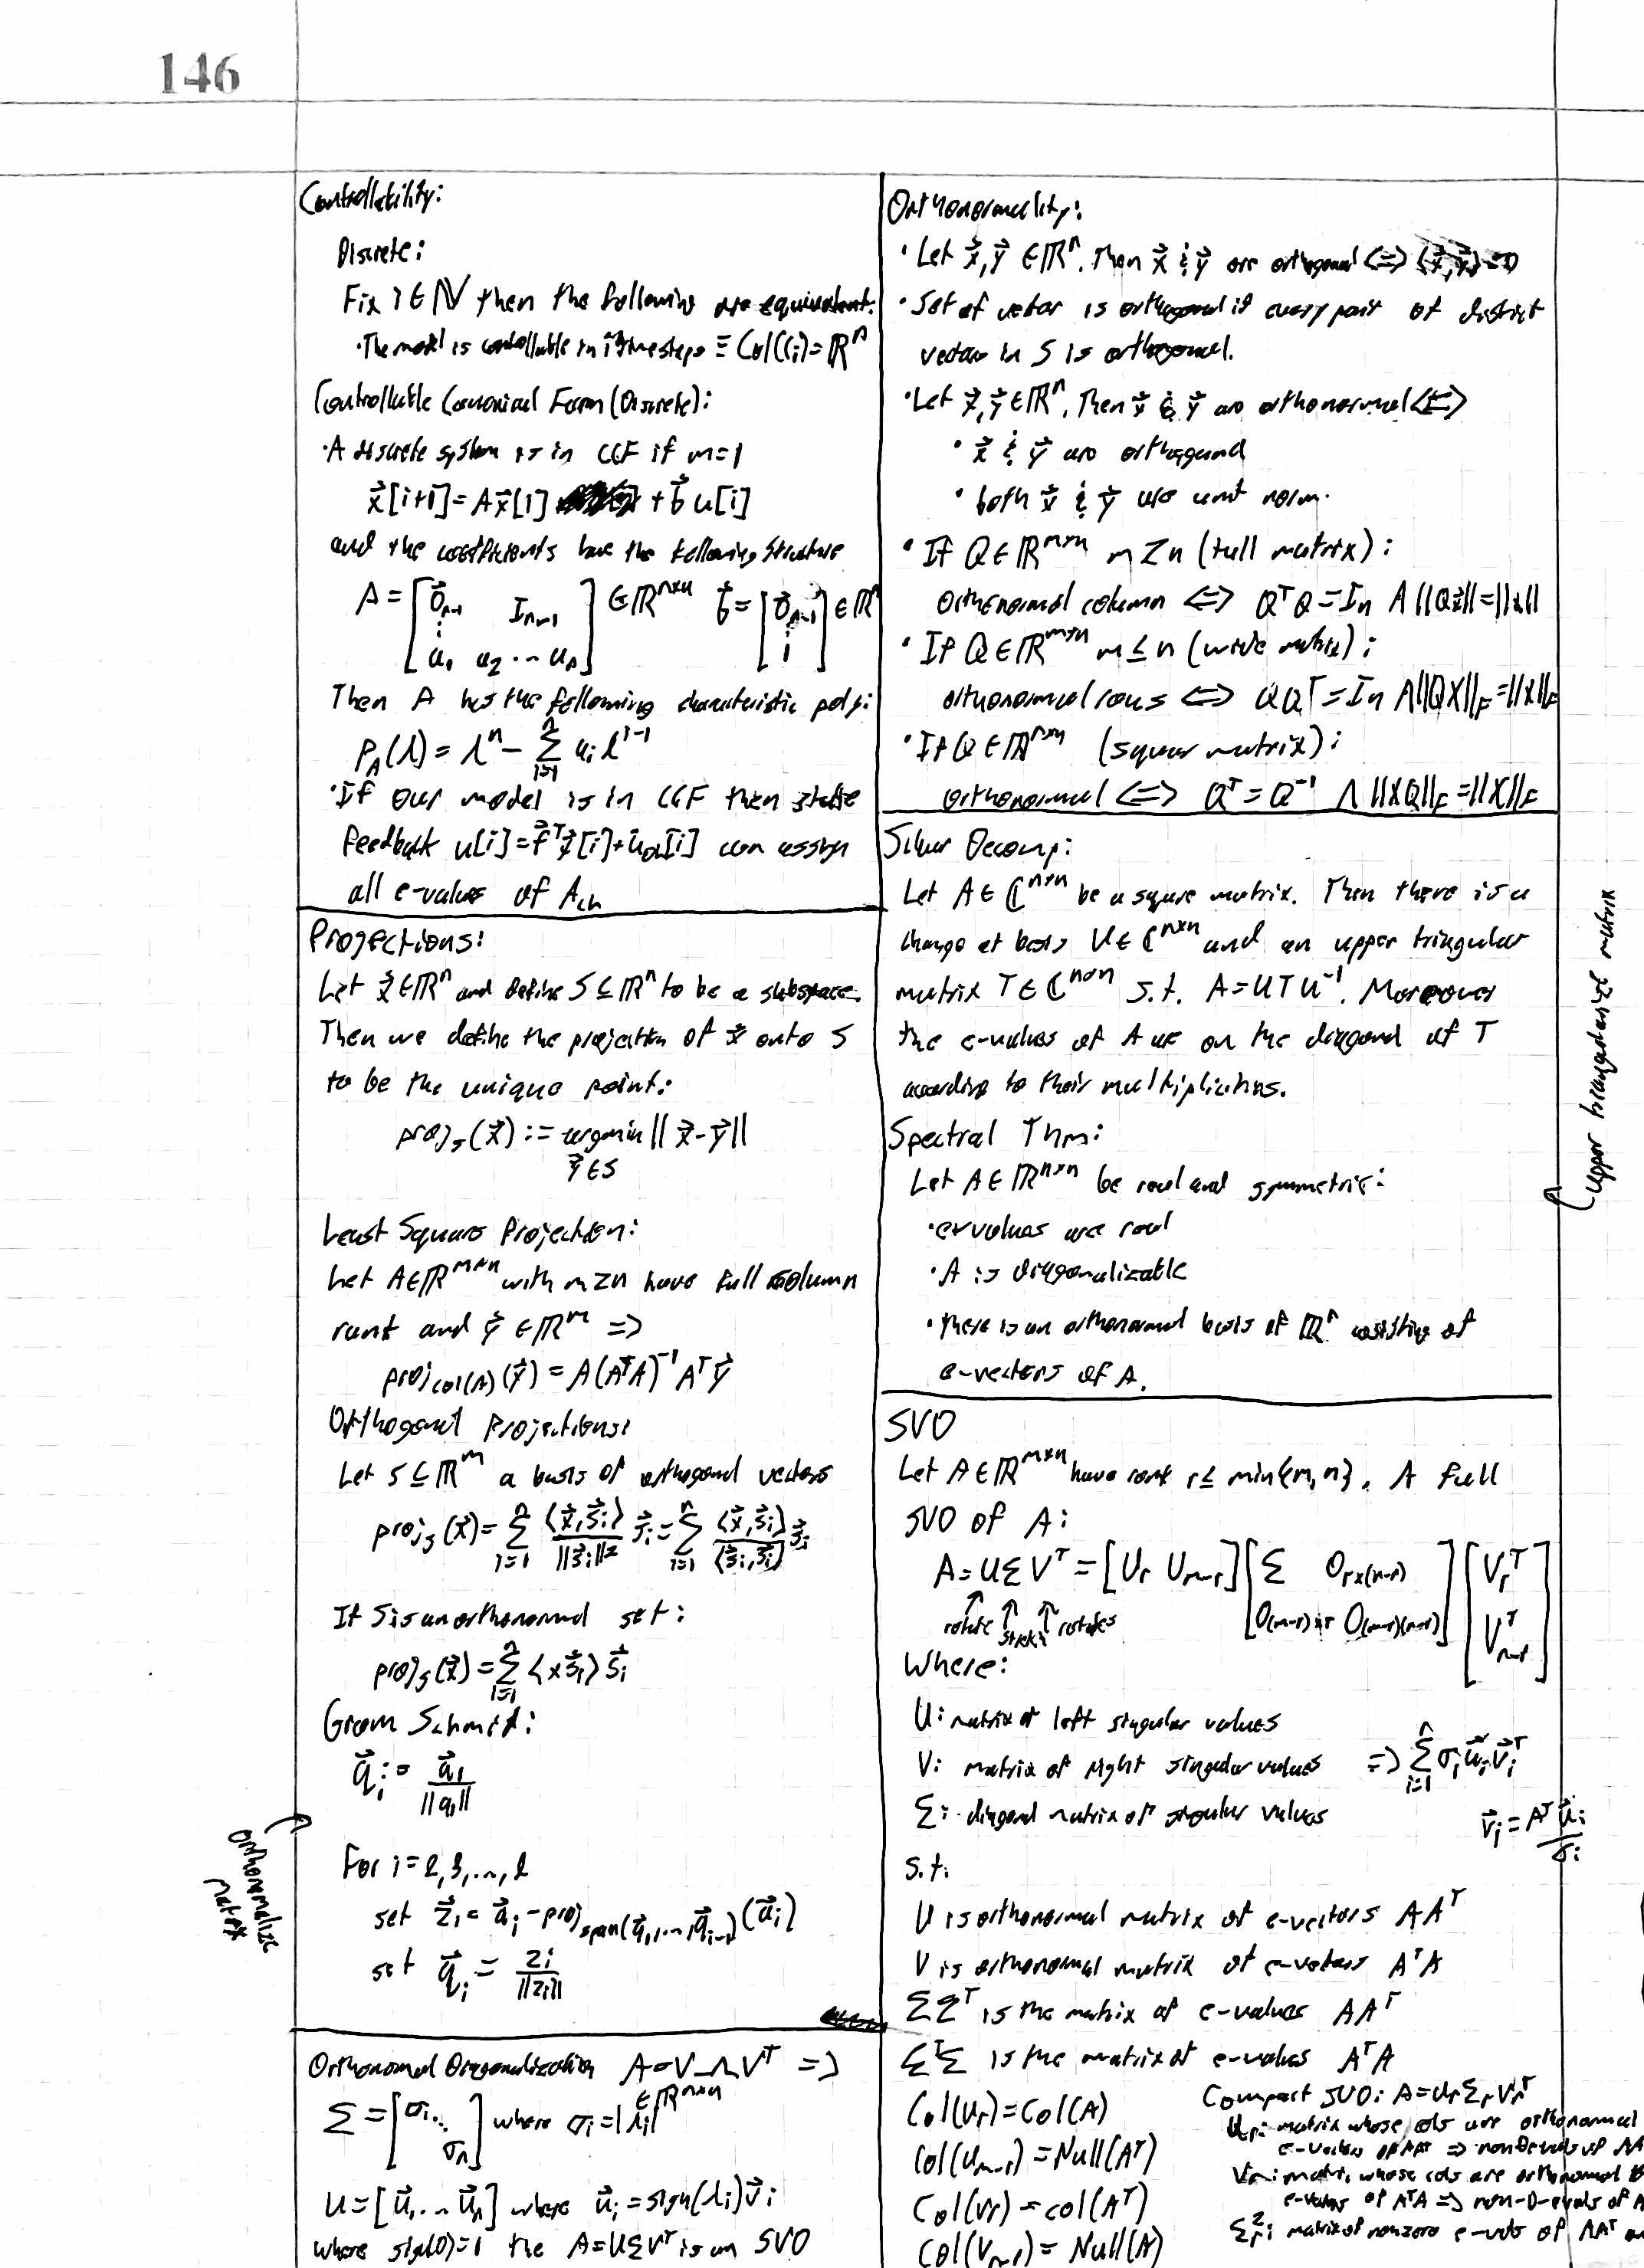 146
Controllability:
Discrete:
Fix i ∈ ℕ then the following are equivalent.
· The model is controllable in i timesteps ≡ Col(Ci) = ℝⁿ
Controllable Canonical Form (Discrete):
· A discrete system is in CCF if m=1
x⃗[i+1] = Ax⃗[i] + b⃗ u[i]
and the coefficients have the following structure
A = [0⃗ₙ₋₁ Iₙ₋₁ ; a₁ a₂ ... aₙ] ∈ ℝⁿˣⁿ b⃗ = [0⃗ₙ₋₁ ; 1] ∈ ℝⁿ
Then A has the following characteristic poly:
P_A(λ) = λⁿ - Σⁿᵢ₌₁ aᵢ λⁱ⁻¹
· If our model is in CCF then state
feedback u[i] = f⃗ᵀx⃗[i] + u_OL[i] can assign
all e-values of A_ch
Projections:
Let x⃗ ∈ ℝⁿ and define S ⊆ ℝⁿ to be a subspace.
Then we define the projection of x⃗ onto S
to be the unique point:
proj_S(x⃗) := argmin || x⃗ - y⃗ ||
y⃗ ∈ S
Least Square Projection:
Let A ∈ ℝᵐˣⁿ with m ≥ n have full column
rank and y⃗ ∈ ℝᵐ =>
proj_col(A)(y⃗) = A(AᵀA)⁻¹Aᵀy⃗
Orthogonal Projections:
Let S ⊆ ℝᵐ a basis of orthogonal vectors
proj_S(x⃗) = Σⁿᵢ₌₁ ⟨x⃗,s⃗ᵢ⟩/||s⃗ᵢ||² s⃗ᵢ = Σⁿᵢ₌₁ ⟨x⃗,s⃗ᵢ⟩/⟨s⃗ᵢ,s⃗ᵢ⟩ s⃗ᵢ
If S is an orthonormal set:
proj_S(x⃗) = Σⁿᵢ₌₁ ⟨x s⃗ᵢ⟩ s⃗ᵢ
Gram Schmit:
q⃗ᵢ := a⃗₁/||a₁||
Orthonormalize
matrix
For i = 2,3,..., l
set z⃗ᵢ = a⃗ᵢ - proj_span(q⃗₁,...,q⃗ᵢ₋₁)(a⃗ᵢ)
set q⃗ᵢ = zᵢ/||zᵢ||
Orthonormal Diagonalization A = VΛVᵀ =>
∈ ℝⁿˣⁿ
Σ = [σ₁ ⋱ σₙ] where σᵢ = |λᵢ|
U = [u⃗₁ ... u⃗ₙ] where u⃗ᵢ = sign(λᵢ)v⃗ᵢ
where sign(0)=1 the A = UΣVᵀ is an SVD
Orthonormality:
· Let x⃗, y⃗ ∈ ℝⁿ. Then x⃗ & y⃗ are orthogonal <=> ⟨x⃗,y⃗⟩=0
· Set of vector is orthogonal if every pair of distinct
vector in S is orthogonal.
· Let x⃗, y⃗ ∈ ℝⁿ. Then x⃗ & y⃗ are orthonormal <=>
· x⃗ & y⃗ are orthogonal
· both x⃗ & y⃗ are unit norm.
· If Q ∈ ℝᵐˣⁿ m ≥ n (tall matrix):
orthonormal column <=> QᵀQ = Iₙ ∧ ||Qx⃗|| = ||x||
· If Q ∈ ℝᵐˣⁿ m ≤ n (wide matrix):
orthonormal rows <=> QQᵀ = Iₙ ∧ ||QX||_F = ||X||_F
· If Q ∈ ℝⁿˣⁿ (square matrix):
orthonormal <=> Qᵀ = Q⁻¹ ∧ ||XQ||_F = ||X||_F
Schur Decomp:
Let A ∈ ℂⁿˣⁿ be a square matrix. Then there is a
change of basis U ∈ ℂⁿˣⁿ and an upper triangular
matrix T ∈ ℂⁿˣⁿ s.t. A = UTU⁻¹. Moreover
the e-values of A are on the diagonal of T
according to their multiplicities.
upper triangularize matrix
Spectral Thm:
Let A ∈ ℝⁿˣⁿ be real and symmetric:
· e-values are real
· A is diagonalizable
· there is an orthonormal basis of ℝⁿ consisting of
e-vectors of A.
SVD
Let A ∈ ℝᵐˣⁿ have rank r ≤ min{m,n}. A full
SVD of A:
A = UΣVᵀ = [Uᵣ Uₘ₋ᵣ] [Σ 0ᵣₓ₍ₙ₋ᵣ₎ ; 0₍ₘ₋ᵣ₎ₓᵣ 0₍ₘ₋ᵣ₎₍ₙ₋ᵣ₎] [Vᵣᵀ ; Vₙ₋ᵣᵀ]
rotate stretch rotates
Where:
U: matrix of left singular values
V: matrix of right singular values => Σʳᵢ₌₁ σᵢu⃗ᵢv⃗ᵢᵀ
Σ: diagonal matrix of singular values
v⃗ᵢ = Aᵀu⃗ᵢ/σᵢ
s.t.
U is orthonormal matrix of e-vectors AAᵀ
V is orthonormal matrix of e-vectors AᵀA
ΣΣᵀ is the matrix of e-values AAᵀ
ΣᵀΣ is the matrix of e-values AᵀA
Col(Uᵣ) = Col(A)
Col(Uₘ₋ᵣ) = Null(Aᵀ)
Col(Vᵣ) = col(Aᵀ)
Col(Vₙ₋ᵣ) = Null(A)
Compact SVD: A = UᵣΣᵣVᵣᵀ
Uᵣ: matrix whose cols are orthonormal
e-vectors of AAᵀ => non 0 evals of AA
Vᵣ: matrix whose cols are orthonormal
e-vectors of AᵀA => non-0-evals of A
Σᵣ²: matrix of nonzero e-vals of AAᵀ